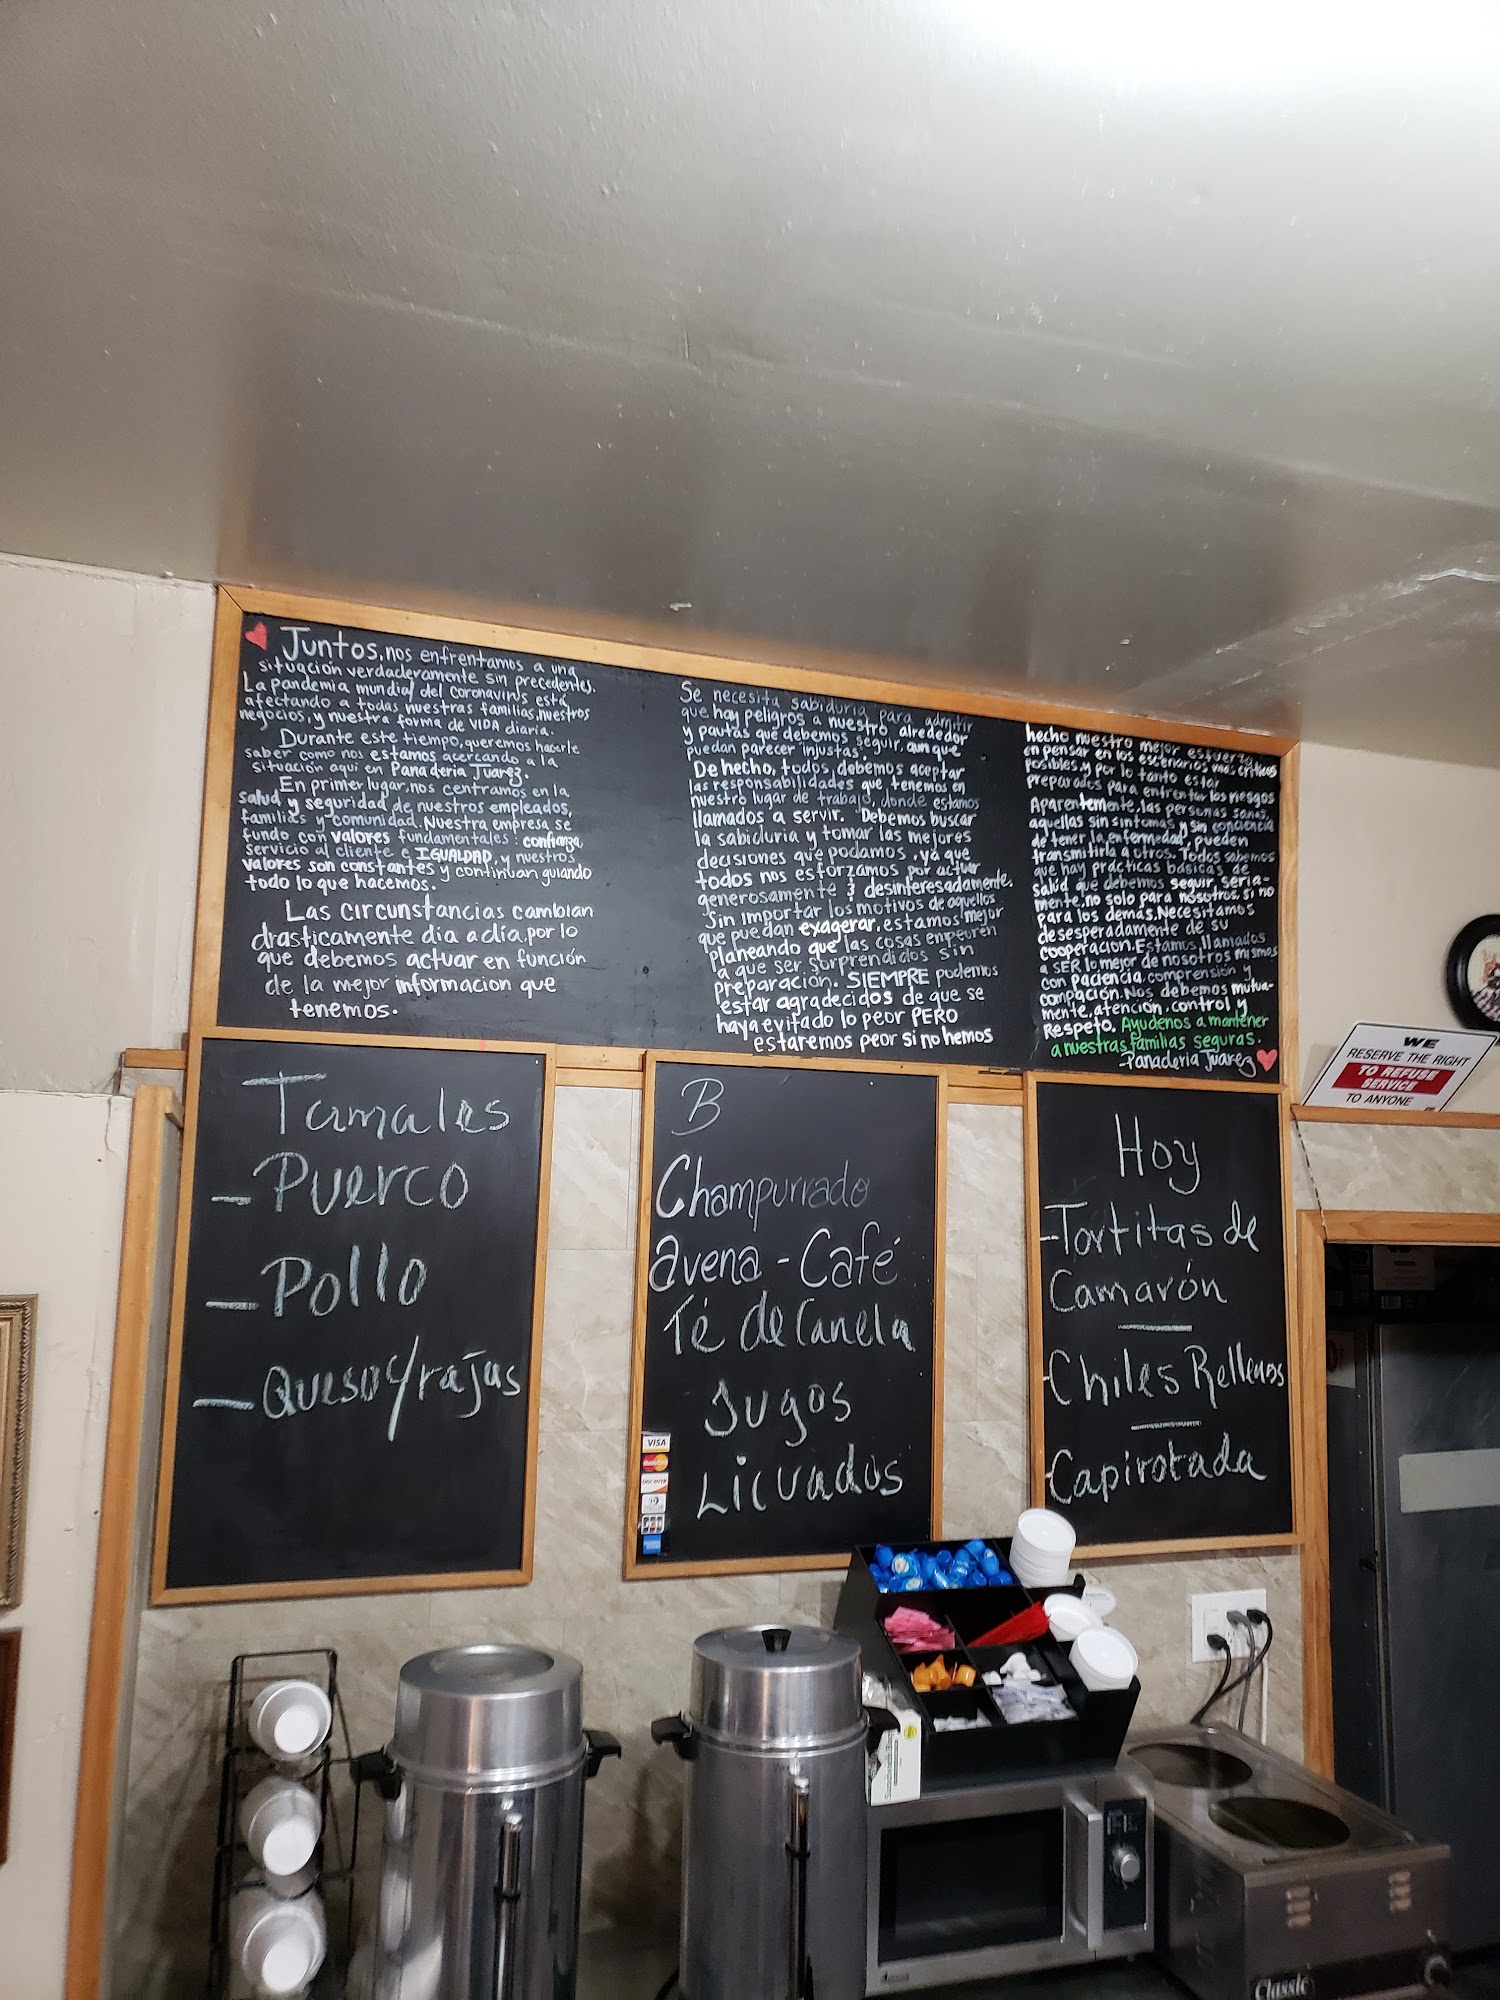 Juntos, nos enfrentamos a una
situación verdaderamente sin precedentes.
La pandemia mundial del coronavirus está
afectando a todas nuestras familias, nuestros
negocios, y nuestra forma de VIDA diaria.
Durante este tiempo, queremos hacerle
saber como nos estamos acercando a la
situación aquí en Panaderia Juarez.
En primer lugar, nos centramos en la
salud y seguridad de nuestros empleados,
familias y comunidad. Nuestra empresa se
fundo con valores fundamentales: confianza,
servicio al cliente e IGUALDAD, y nuestros
valores son constantes y continuan guiando
todo lo que hacemos.
Las circunstancias cambian
drasticamente dia a día, por lo
que debemos actuar en función
de la mejor informacion que
tenemos.
Se necesita sabiduria para admitir
que hay peligros a nuestro alrededor
y pautas que debemos seguir, aunque
puedan parecer injustas.
De hecho, todos debemos aceptar
las responsabilidades que tenemos en
nuestro lugar de trabajo, donde estamos
llamados a servir. Debemos buscar
la sabiduria y tomar las mejores
decisiones que podamos, ya que
todos nos esforzamos por actuar
generosamente y desinteresadamente.
Sin importar los motivos de aquellos
que puedan exagerar, estamos mejor
planeando que las cosas empeoren
a que ser sorprendidos sin
preparación. SIEMPRE podemos
estar agradecidos de que se
haya evitado lo peor PERO
estaremos peor si no hemos
hecho nuestro mejor esfuerzo
en pensar en los escenarios mas criticos
posibles y por lo tanto estar
preparados para enfrentar los riesgos
Aparentemente, las personas sanas,
aquellas sin sintomas y sin conciencia
de tener la enfermedad, pueden
transmitirla a otros. Todos sabemos
que hay practicas basicas de
salud que debemos seguir, seria-
mente, no solo para nosotros, si no
para los demás. Necesitamos
desesperadamente de su
cooperacion. Estamos llamados
a SER lo mejor de nosotros mismos
con paciencia, comprension y
compación. Nos debemos mutua-
mente, atención, control y
Respeto. Ayudenos a mantener
a nuestras familias seguras.
-Panaderia Juarez
WE
RESERVE THE RIGHT
TO REFUSE
SERVICE
TO ANYONE
Tamales
-Puerco
-Pollo
-Queso c/rajas
B
Champurrado
avena - Café
Té de Canela
Jugos
Licuados
VISA
MasterCard
DISCOVER
JCB
Hoy
-Tortitas de
Camarón
-Chiles Rellenos
-Capirotada
Classic